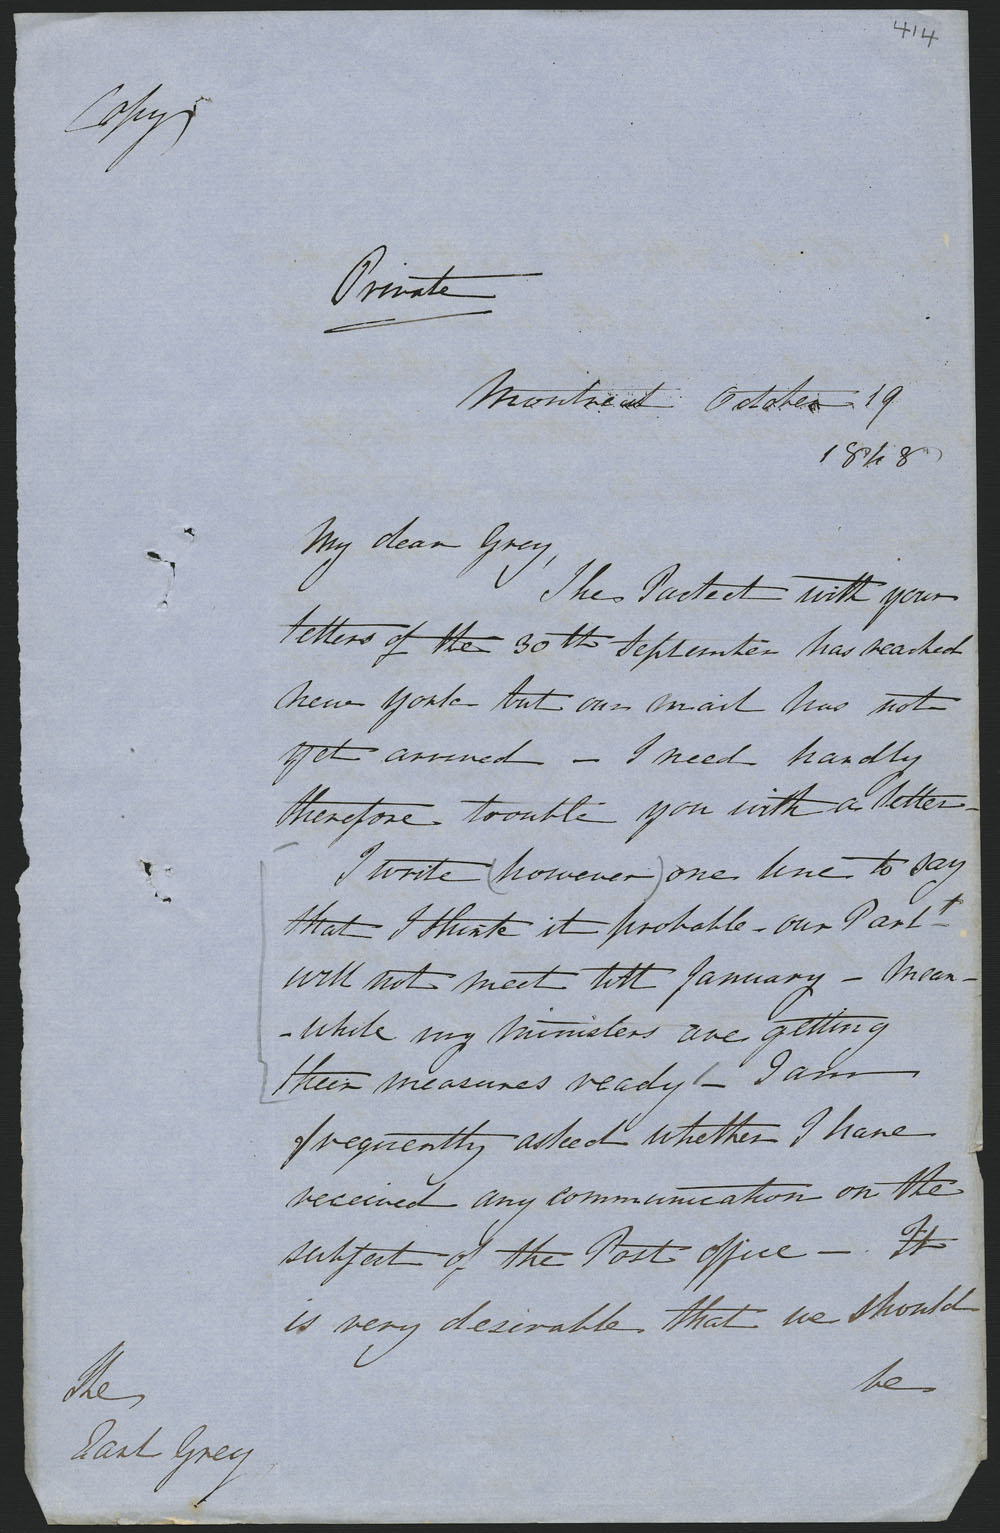 414
Copy
Private
Montreal October 19
1848
My dear Grey,
The Packet with your
letters of the 30th September has reached
New York but our mail has not
yet arrived – I need hardly
therefore trouble you with a letter –
I write (however) one line to say
that I think it probable our Parlt
will not meet till January – Mean-
-while my Ministers are getting
their measures ready – I am
frequently asked whether I have
received any communication on the
subject of the Post Office – It
is very desirable that we should
be
The
Earl Grey